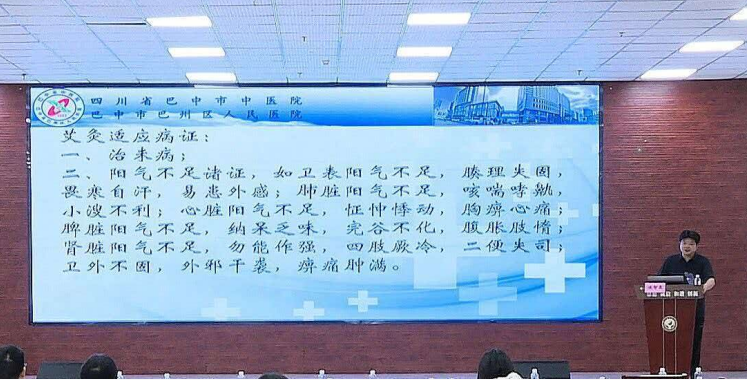 四川省巴中市中医院
巴中市巴州区人民医院
艾灸适应病证：
一、治未病；
二、阳气不足诸证，如卫表阳气不足，腠理失固，
畏寒自汗，易患外感；肺脏阳气不足，咳喘哮鼽，
小溲不利；心脏阳气不足，怔忡悸动，胸痹心痛；
脾脏阳气不足，纳呆乏味，完谷不化，腹胀肢惰；
肾脏阳气不足，勿能作强，四肢厥冷，二便失司；
卫外不固，外邪干袭，痹痛肿满。